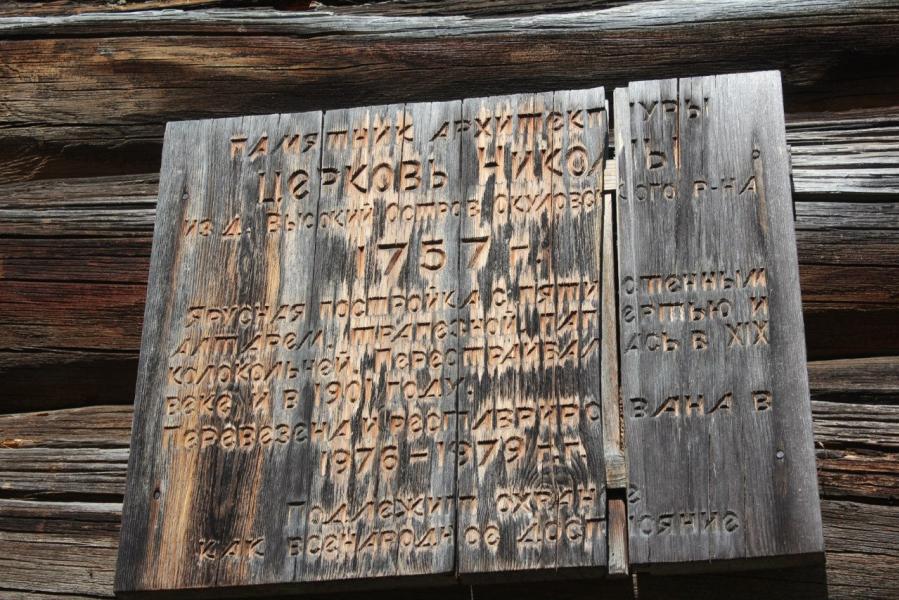 ПАМЯТНИК АРХИТЕКТУРЫ
ЦЕРКОВЬ НИКОЛЫ
ИЗ Д. ВЫСОКИЙ ОСТРОВ ОКУЛОВСКОГО Р-НА
1757 г.
ЯРУСНАЯ ПОСТРОЙКА С ПЯТИСТЕННЫМ
АЛТАРЕМ, ТРАПЕЗНОЙ, ПАПЕРТЬЮ И
КОЛОКОЛЬНЕЙ. ПЕРЕСТРАИВАЛАСЬ В XIX
ВЕКЕ И В 1901 ГОДУ.
ПЕРЕВЕЗЕНА И РЕСТАВРИРОВАНА В
1976-1979 г.г.
ПОДЛЕЖИТ ОХРАНЕ
КАК ВСЕНАРОДНОЕ ДОСТОЯНИЕ